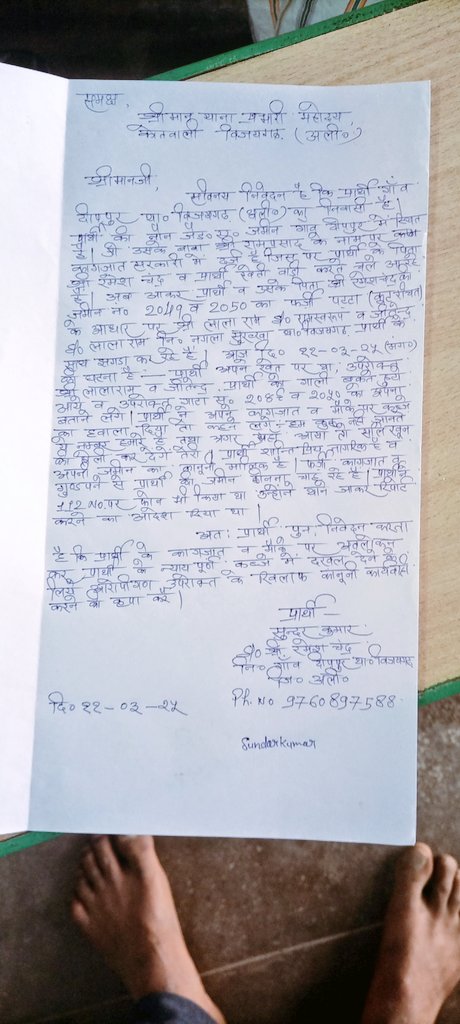 समक्ष,
श्रीमान थाना प्रभारी महोदय,
कोतवाली विजयगढ़, (अली०)
श्रीमानजी,
सविनय निवेदन है कि प्रार्थी गाँव
दीपपुर था० विजयगढ़ (अली०) का निवासी है।
प्रार्थी की जमीन गाँव दीपपुर में स्थित
है। जो उसके बाबा श्री रामप्रसाद के नाम पर
कागजात सरकारी में दर्ज है जिस पर प्रार्थी के पिता
श्री रमेश चंद्र व प्रार्थी खेती बाड़ी करते चले आ रहे
हैं। प्रार्थी व उसके पिता श्री रमेशचंद्र की
जमीन न० 2049 व 2050 का फर्जी पट्टा (कूटरचित)
के आधार पर श्री लाला राम s/० रामस्वरूप व जीतेन्द्र
s/० लाला राम नि० नगला था० विजयगढ़ प्रार्थी के
साथ झगड़ा कर रहे हैं। आज दि० २२-०३-२५
की घटना है — प्रार्थी अपने खेत पर था, उपरोक्त
श्री लालाराम व जीतेन्द्र प्रार्थी को गाली बकते हुये
आये व उपरोक्त गाटा सं० व २०५० को अपना
बताने लगे। प्रार्थी ने अपने कागजात व मौके पर कब्जे
का हवाला दिया तो कहने लगे - हम कुछ नहीं जानते
ये नम्बर हमारे हैं तथा अगर यहाँ आया तो
कर देंगे तेरी। प्रार्थी शान्ति प्रिय नागरिक है व
अपनी जमीन का कानूनी मालिक है। फर्जी कागजात व
से प्रार्थी की जमीन छीनना चाह रहे हैं। प्रार्थी ने
112 No. पर फोन भी किया था उन्होंने थाने जाकर रिपोर्ट
करने का आदेश दिया था।
अतः प्रार्थी पुनः निवेदन करता
है कि प्रार्थी के कागजात व मौके पर अवलोकन
कर प्रार्थी के कब्जे में दखल देने के
लिये आरोपीगण उपरोक्त के खिलाफ कानूनी कार्यवाही
करने की कृपा करें।
प्रार्थी —
सुन्दर कुमार
s/० श्री रमेश चंद्र
नि० गाँव दीपपुर था० विजयगढ़
जि० अली०
दि० २२-०३-२५
Ph. No 9760897588
Sundarkumar